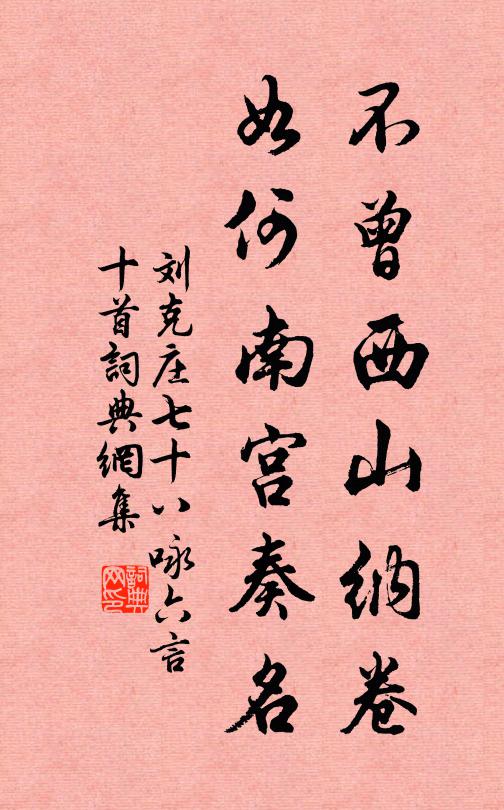 不曾西山纳卷
如何南宫奏名
刘克庄七十八咏六言
十首詞典網集
詞典网印